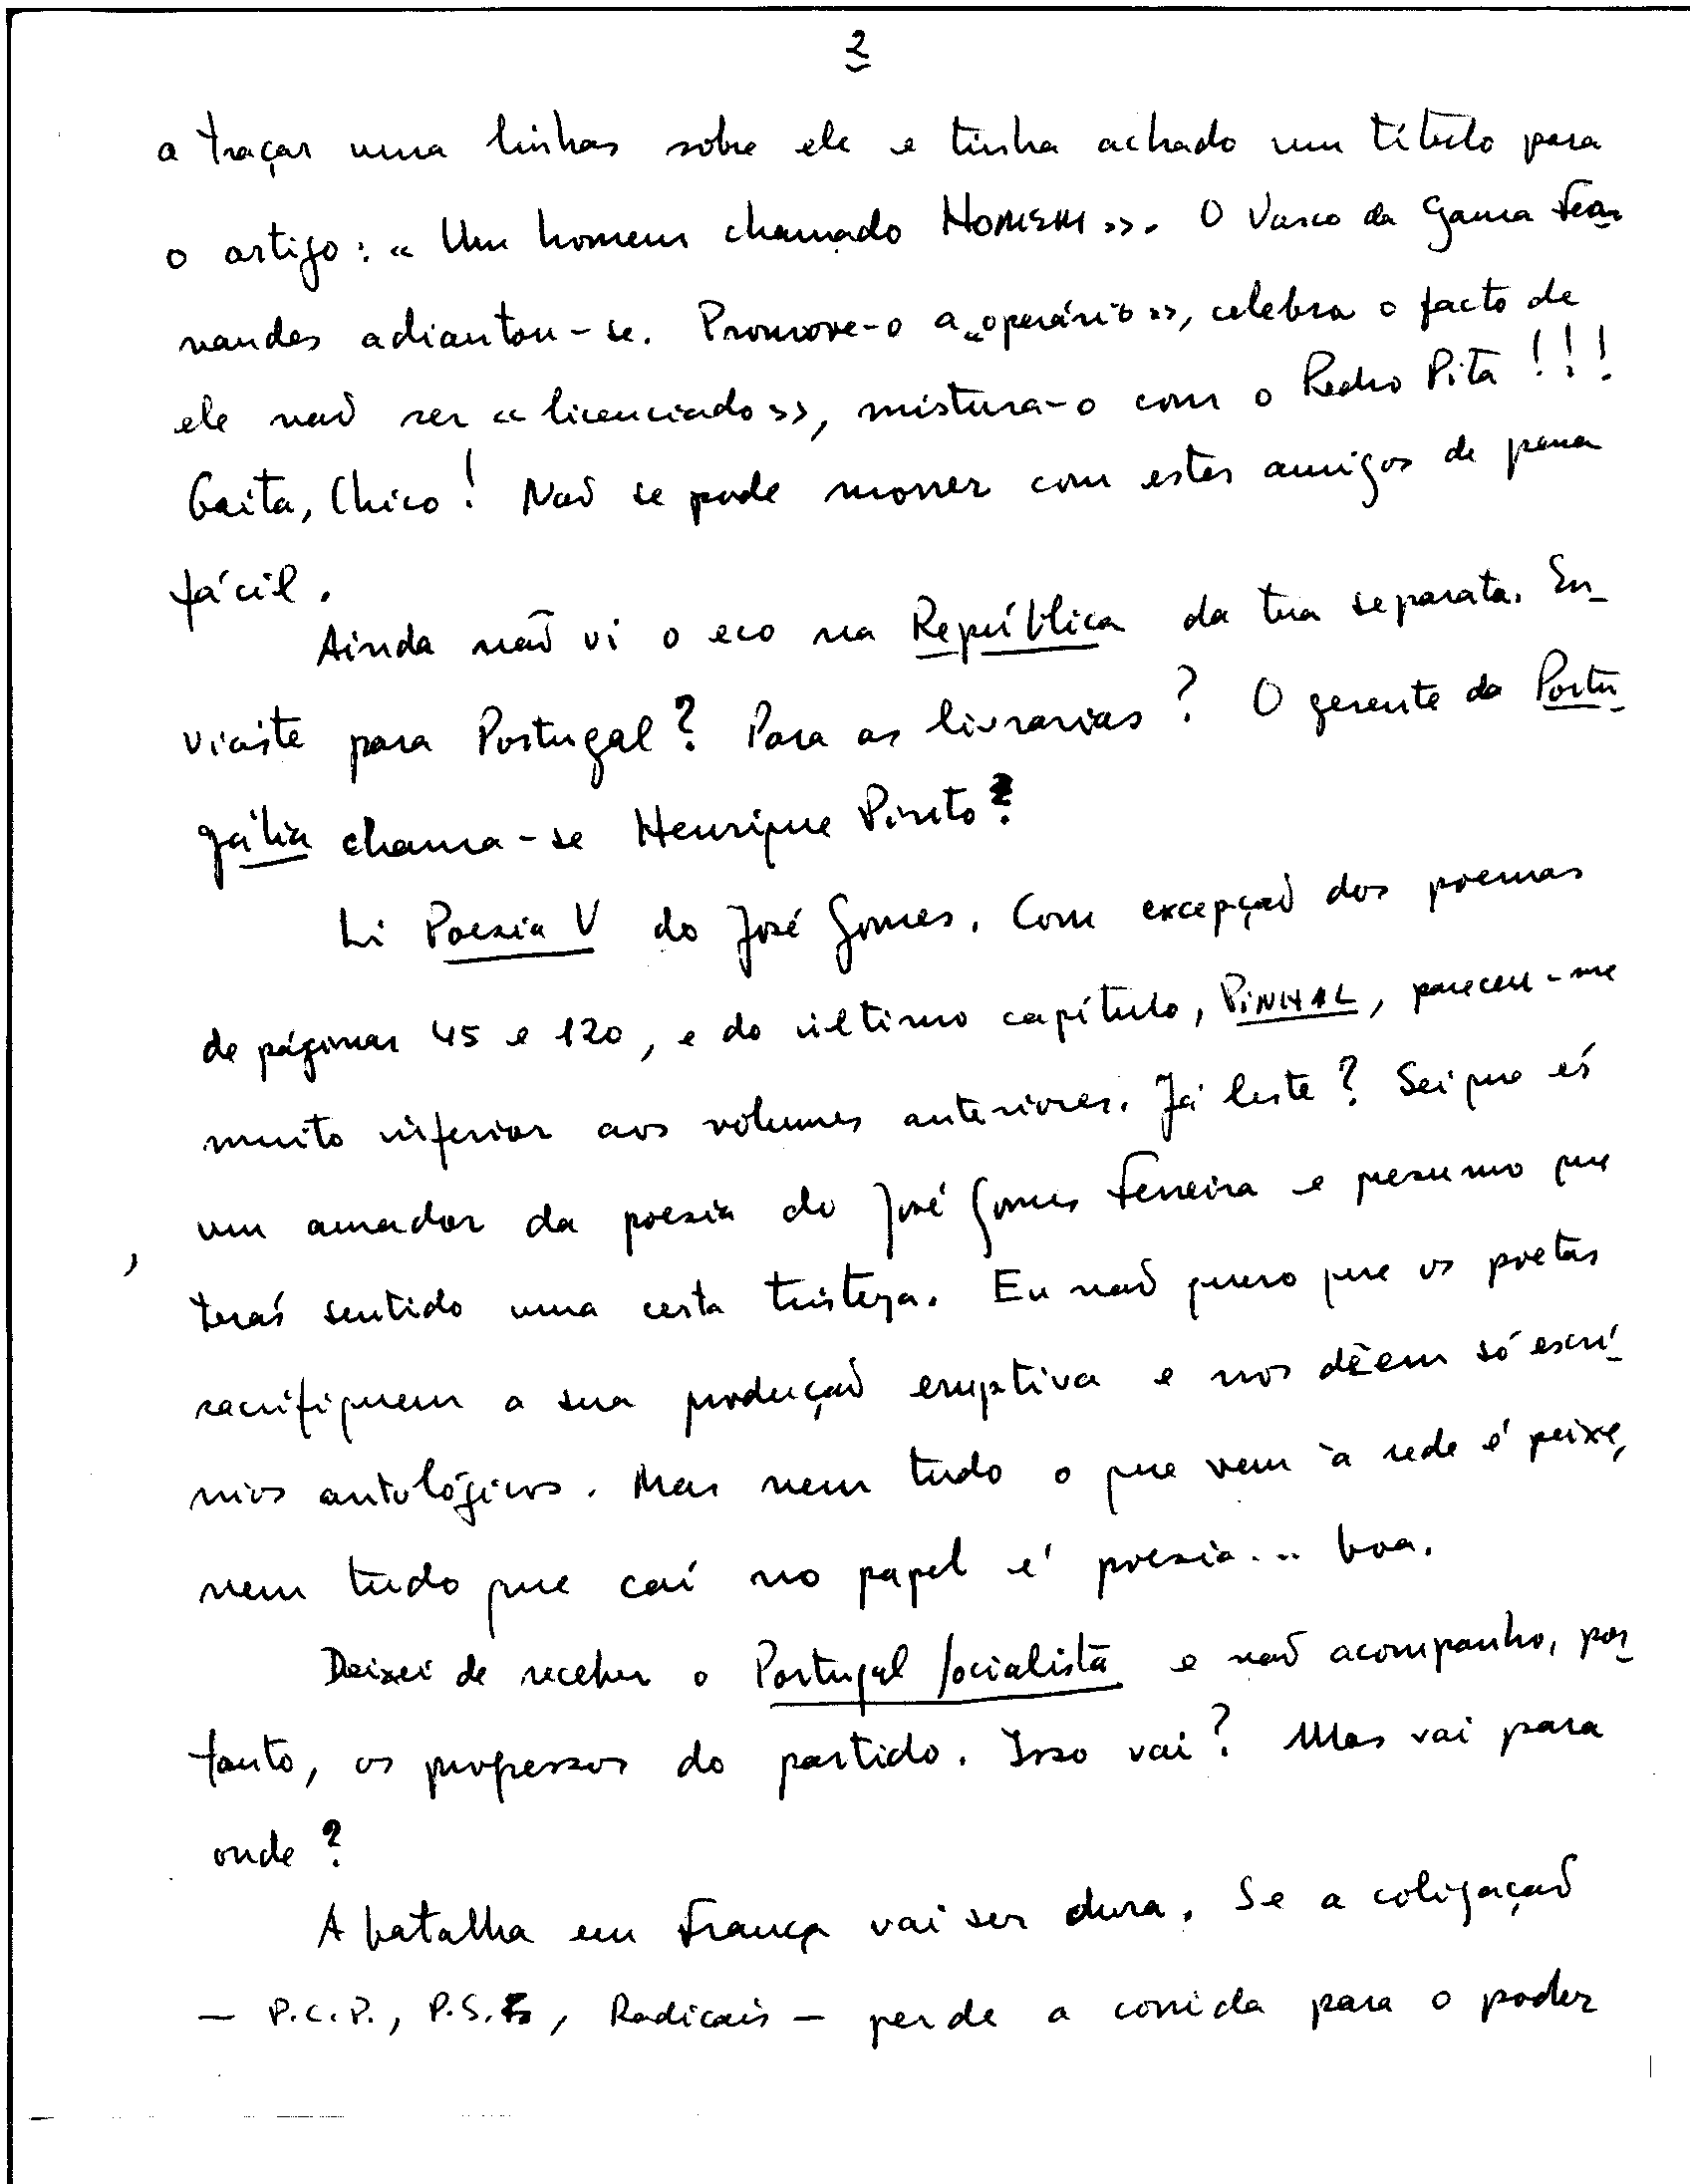 2
a traçar uma linhas sobre ele e tinha achado um título para
o artigo: « Um homem chamado HOMEM ». O Vasco da Gama Fer-
nandes adiantou-se. Promove-o a «operário», celebra o facto de
ele não ser « licenciado », mistura-o com o Pedro Pita !!!
Gaita, Chico! Não se pode morrer com estes amigos de pena
fácil.
Ainda não vi o eco na República da tua separata. En-
viaste para Portugal? Para as livrarias? O gerente da Portu-
gália chama-se Henrique Pinto?
Li Poesia V do José Gomes. Com excepção dos poemas
de páginas 45 e 120, e do último capítulo, PINHAL, pareceu-me
muito inferior aos volumes anteriores. Já leste? Sei que és
um amador da poesia do José Gomes Ferreira e presumo que
terás sentido uma certa tristeza. Eu não quero que os poetas
sacrifiquem a sua produção eruptiva e nos dêem só escrí-
nios antológicos. Mas nem tudo o que vem à rede é peixe,
nem tudo que caí no papel é poesia... boa.
Deixei de receber o Portugal Socialista e não acompanho, por-
tanto, os progressos do partido. Isso vai? Mas vai para
onde?
A batalha em França vai ser dura. Se a coligação
— P.C.P., P.S., Radicais — perde a corrida para o poder